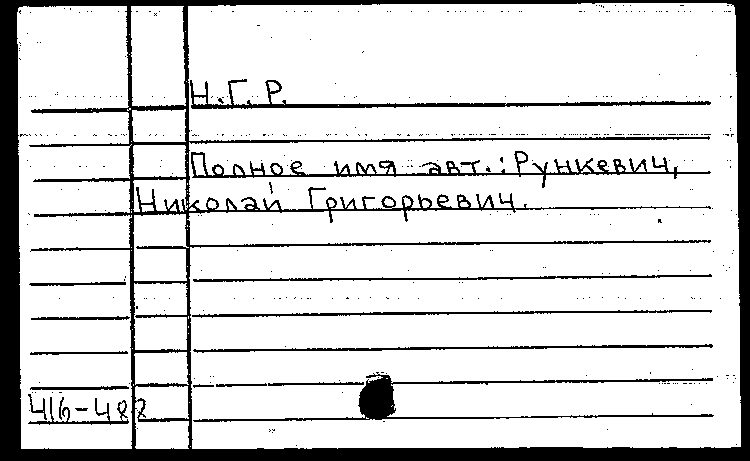 Н.Г.Р.
Полное имя авт.: Рункевич,
Николай Григорьевич.
416-488